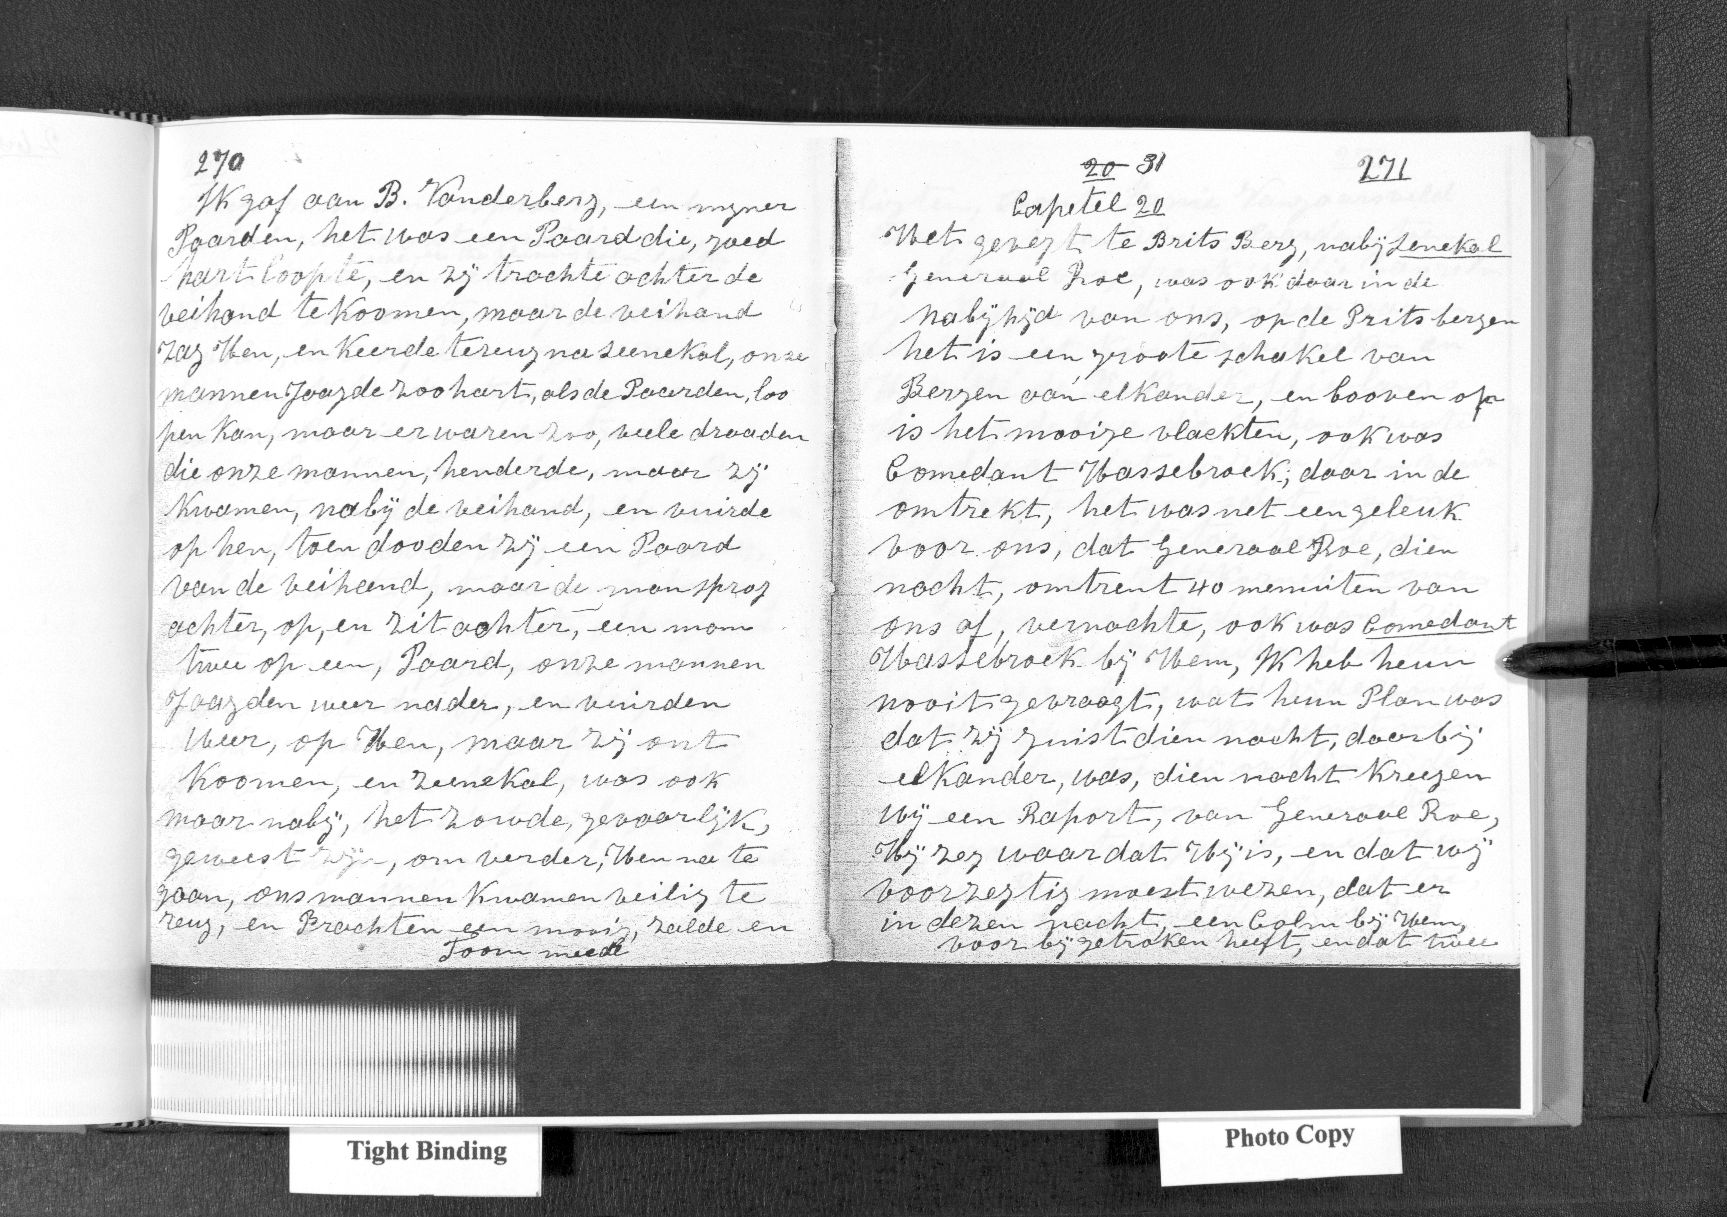 270
Ik gaf aan B. Vanderberg, een myner
Paarden, het was een Paard die, goed
hart loopte, en zij trachte achter de
veihand te Koomen, maar de veihand
Zag Hen, en Keerde tereug na Seenekal, onze
mannen Jaagde zoo hart, als de Paarden, loo
pen Kan, maar er waren zoo, veele draaden
die onze mannen, henderde, maar zij
Kwamen, nabij de veihand, en vuirde
op hen, toen dooden zij een Paard
van de veihand, maar de man sprog
achter, op, en zit achter, een man
twee op een, Paard, onze mannen
Jaagden weer nader, en vuirden
Weer, op Hen, maar zij ont
Koomen, en Zeenekal, was ook
maar nabij, het zowde, gevaarlijk,
geweest zijn, om verder, Hen na te
gaan, ons mannen Kwamen veilig te
reug, en Brachten een mooij, zalde en
Toom meede
20 31
271
Capetel 20
Het gevegt te Brits Berg, nabij Senekal
Generaal Roe, was ook daar in de
Nabijhijd van ons, op de Pritsbergen
het is een groote schakel van
Bergen aan elkander, en booven op
is het mooige vlackten, ook was
Comedant Hassebroek; daar in de
omtrekt, het was net een geleuk
voor ons, dat Generaal Roe, dien
nacht, omtrent 40 menuiten van
ons af, vernachte, ook was Comedant
Hassebroek bij Hem, Ik heb heun
nooit gevraagt, wat heun Plan was
dat zij zuist dien nacht, daar bij
elkander, was, dien nacht Kreegen
wij een Raport, van Generaal Roe,
Hij zeg waar dat Hij is, en dat wij
voorzegtig moest wezen, dat er
in dezen nacht, een Colm bij Hem,
voor bij getroken heeft, en dat twee
Tight Binding
Photo Copy